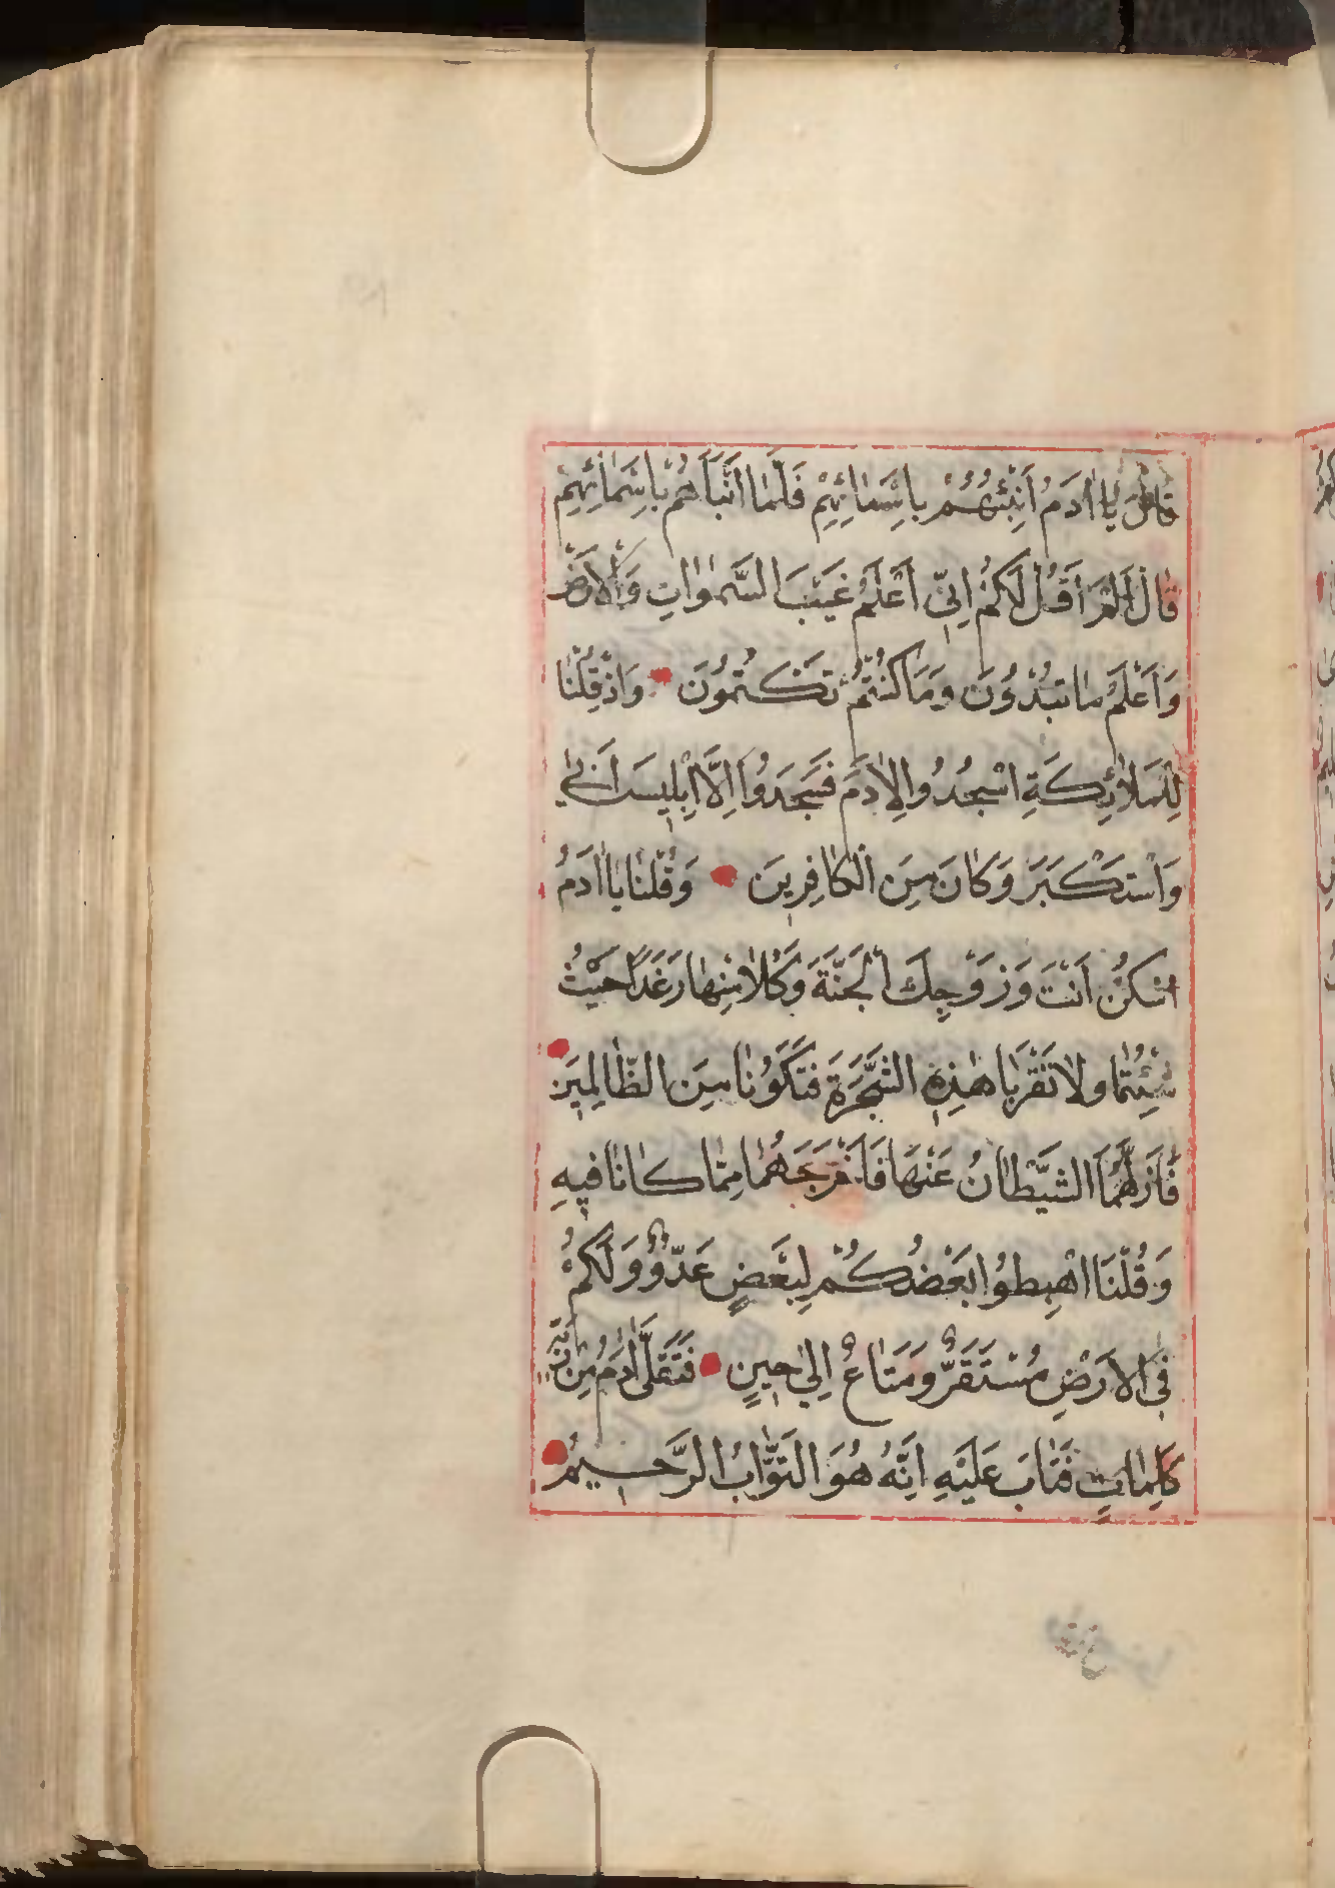 قَالَ يَا اٰدَمُ اَنْبِئْهُمْ بِاَسْمَائِهِمْ فَلَمَّا اَنْبَاَهُمْ بِاَسْمَائِهِمْ
قَالَ اَلَمْ اَقُلْ لَكُمْ اِنِّي اَعْلَمُ غَيْبَ السَّمٰوَاتِ وَالْاَرْضِ
وَاَعْلَمُ مَا تُبْدُوْنَ وَمَا كُنْتُمْ تَكْتُمُوْنَ وَاِذْ قُلْنَا
لِلْمَلَائِكَةِ اسْجُدُوا لِاٰدَمَ فَسَجَدُوا اِلَّا اِبْلِيسَ اَبٰى
وَاسْتَكْبَرَ وَكَانَ مِنَ الْكَافِرِينَ وَقُلْنَا يَا اٰدَمُ
اسْكُنْ اَنْتَ وَزَوْجُكَ الْجَنَّةَ وَكُلَا مِنْهَا رَغَدًا حَيْثُ
شِئْتُمَا وَلَا تَقْرَبَا هٰذِهِ الشَّجَرَةَ فَتَكُوْنَا مِنَ الظَّالِمِينَ
فَاَزَلَّهُمَا الشَّيْطَانُ عَنْهَا فَاَخْرَجَهُمَا مِمَّا كَانَا فِيهِ
وَقُلْنَا اهْبِطُوْا بَعْضُكُمْ لِبَعْضٍ عَدُوٌّ وَلَكُمْ
فِى الْاَرْضِ مُسْتَقَرٌّ وَمَتَاعٌ اِلٰى حِينٍ فَتَلَقّٰى اٰدَمُ مِنْ رَبِّهِ
كَلِمَاتٍ فَتَابَ عَلَيْهِ اِنَّهُ هُوَ التَّوَّابُ الرَّحِيمُ